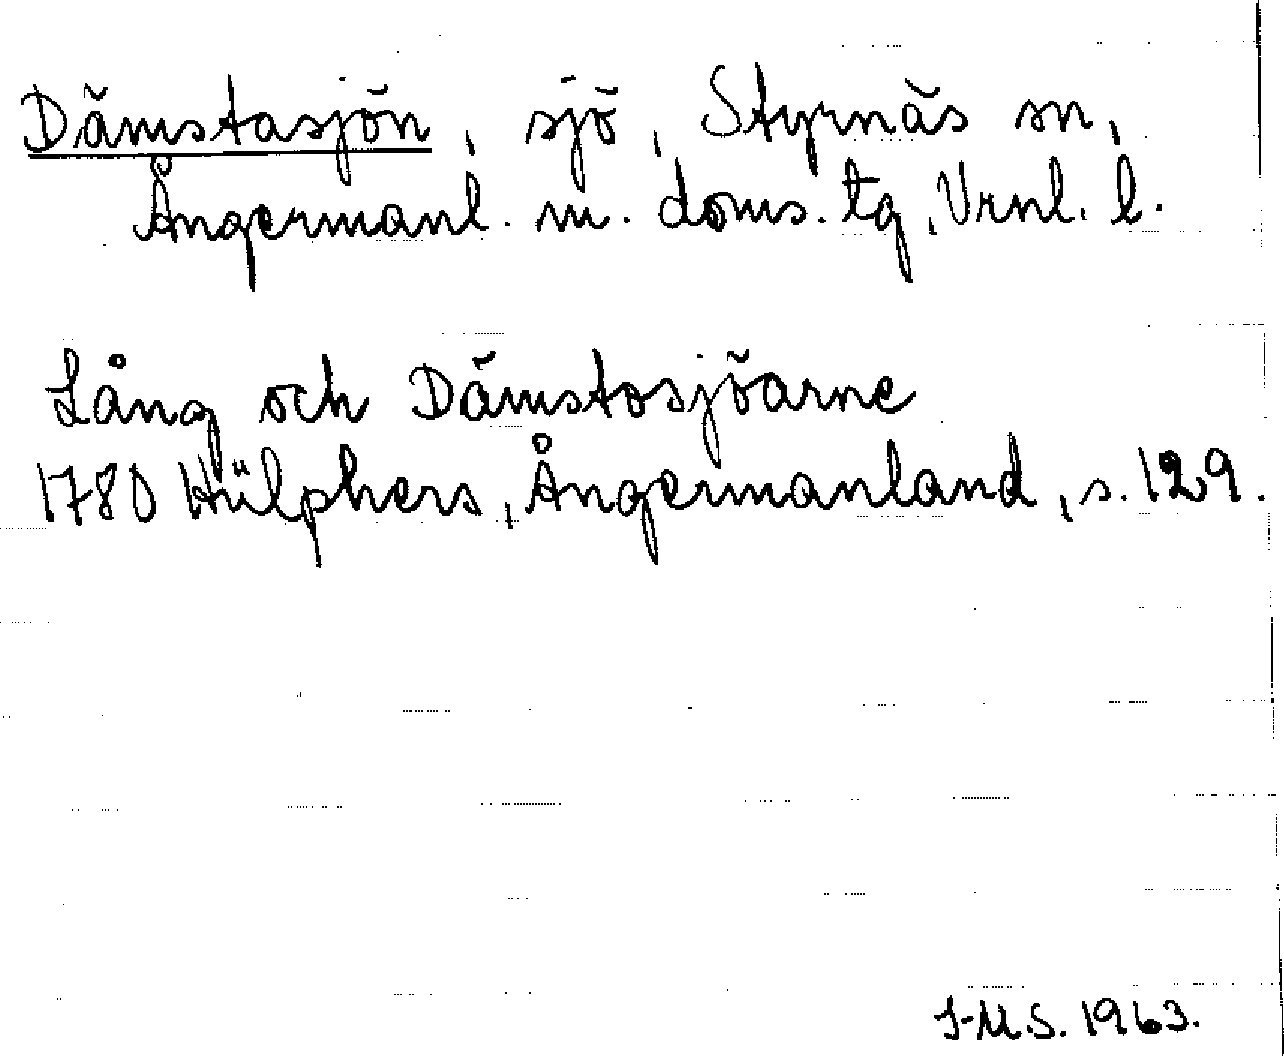 Dämstasjön, sjö, Styrnäs sn,
Ångermanl. m. doms. tg, Vrnl. l.
Lång och Dämstosjöarne
1780 Hülphers, Ångermanland, s. 129.
J-M.S. 1963.